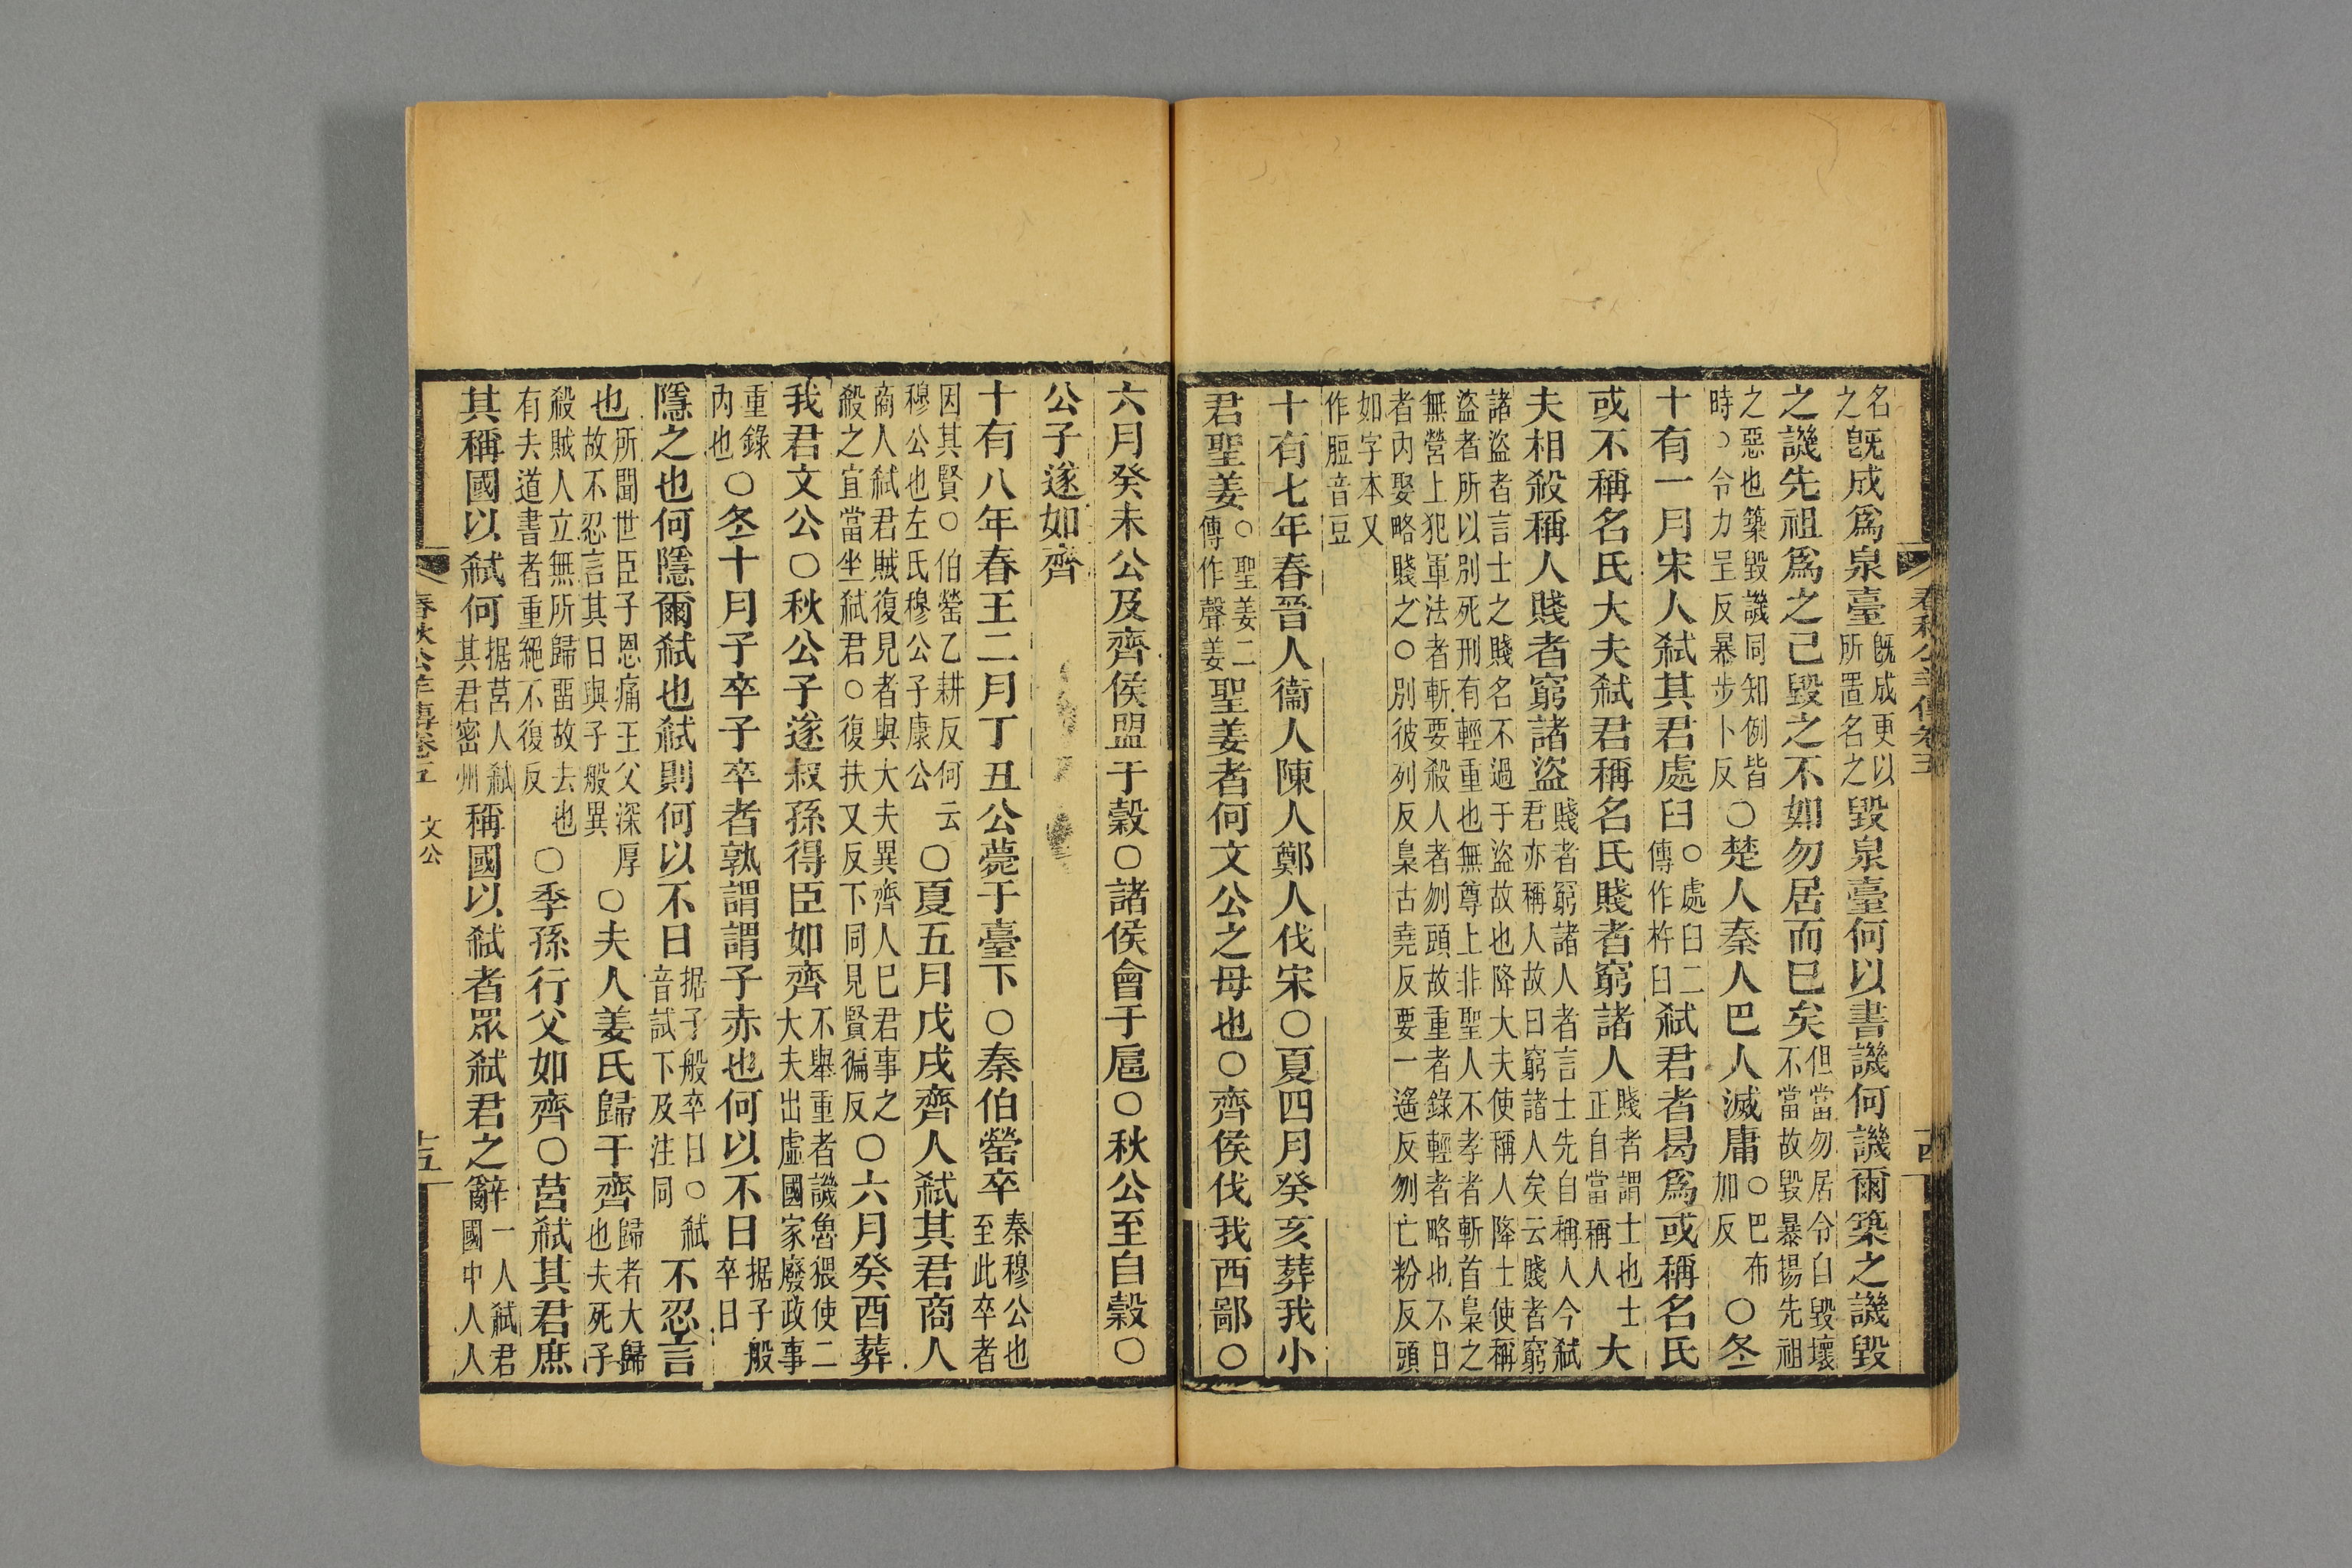 名之旣成爲泉臺旣成更以所置名之毀泉臺何以書譏何譏爾築之譏毀
之譏先祖爲之己毀之不如勿居而巳矣但當勿居令自毀壞不當故毀暴揚先祖
之惡也築毀譏同知例皆時○令力呈反暴步卜反○楚人秦人巴人滅庸○巴布加反○冬
十有一月宋人弑其君處臼○處臼二傳作杵臼弑君者曷爲或稱名氏
或不稱名氏大夫弑君稱名氏賤者窮諸人賤者謂士也士正自當稱人大
夫相殺稱人賤者窮諸盜賤者窮諸人者言士先自稱人今弑君亦稱人故曰窮諸人矣云賤者窮
諸盜者言士之賤名不過于盜故也降大夫使稱人降士使稱盜者所以別死刑有輕重也無尊上非聖人不孝者斬首梟之
無營上犯軍法者斬要殺人者刎頭故重者錄輕者略也不日者內娶略賤之○別彼列反梟古堯反要一遙反刎亡粉反頭
如字本又作脰音豆
十有七年春晉人衞人陳人鄭人伐宋○夏四月癸亥葬我小
君聖姜○聖姜二傳作聲姜聖姜者何文公之母也○齊侯伐我西鄙○
六月癸未公及齊侯盟于穀○諸侯會于扈○秋公至自穀○
公子遂如齊
十有八年春王二月丁丑公薨于臺下○秦伯罃卒秦穆公也至此卒者
因其賢○伯罃乙耕反何云穆公也左氏穆公子康公○夏五月戊戌齊人弑其君商人
商人弑君賊復見者與大夫異齊人巳君事之殺之宜當坐弑君○復扶又反下同見賢徧反○六月癸酉葬
我君文公○秋公子遂叔孫得臣如齊不舉重者譏魯猥使二大夫出虛國家廢政事
重錄內也○冬十月子卒子卒者孰謂謂子赤也何以不日据子般卒日
隱之也何隱爾弑也弑則何以不日据子般卒日○弑音試下及注同不忍言
也所聞世臣子恩痛王父深厚故不忍言其日與子般異○夫人姜氏歸于齊歸者大歸也夫死子
殺賊人立無所歸畱故去也有夫道書者重絕不復反○季孫行父如齊○莒弑其君庶
其稱國以弑何据莒人弑其君密州稱國以弑者眾弑君之辭一人弑君國中人人
春秋公羊傳卷五
文公
十五